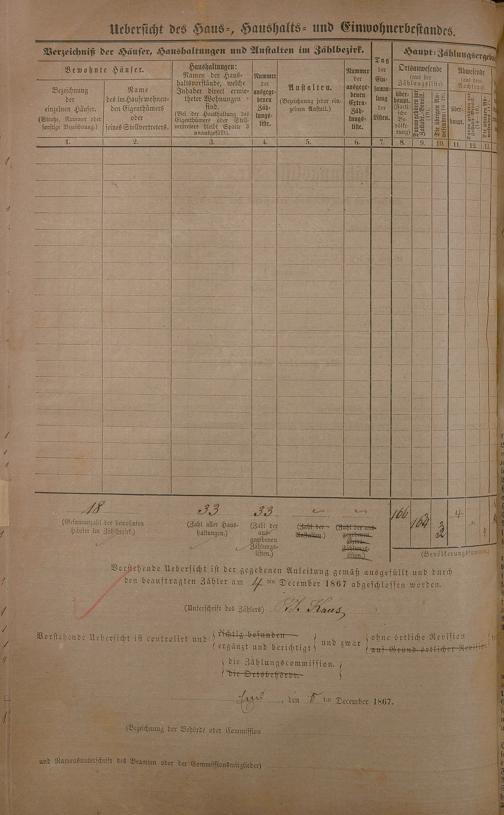 Uebersicht des Haus-, Haushalts- und Einwohnerbestandes.
Verzeichniß der Häuser, Haushaltungen und Anstalten im Zählbezirk.
Tag der Einsammlung der Listen.
Haupt-Zählungsergeb
Bewohnte Häuser.
Bezeichnung der einzelnen Häuser.
(Straße, Nummer oder sonstige Bezeichnung.)
Name des im Hause wohnenden Eigenthümers oder seines Stellvertreters.
Haushaltungen:
Namen der Haushaltsvorstände, welche Inhaber direct ermietheter Wohnungen sind.
(Bei der Haushaltung des Eigenthümers oder Stellvertreters bleibt Spalte 3 unausgefüllt.)
Nummer der ausgegebenen Zählungsliste.
Anstalten.
(Bezeichnung jeder einzelnen Anstalt.)
Nummer der ausgegebenen Extra-Zählungsliste.
Ortsanwesende
Abwesende
1. 2. 3. 4. 5. 6. 7. 8. 9. 10. 11. 12. 13.
18 33 33 166 164 4
(Gesammtzahl der bewohnten Häuser im Zählbezirk.)
(Zahl aller Haushaltungen.)
(Zahl der ausgegebenen Zählungslisten.)
(Zahl der Anstalten.)
Vorstehende Uebersicht ist der gegebenen Anleitung gemäß ausgefüllt und durch
den beauftragten Zähler am 4 ten December 1867 abgeschlossen worden.
(Unterschrift des Zählers)
Vorstehende Uebersicht ist controlirt und
richtig befunden
ergänzt und berichtigt
und zwar
ohne örtliche Revision
auf Grund örtlicher Revision
die Zählungscommission.
die Ortsbehörde.
, den 5 ten December 1867.
(Bezeichnung der Behörde oder Commission
und Namensunterschrift des Beamten oder der Commissionsmitglieder)